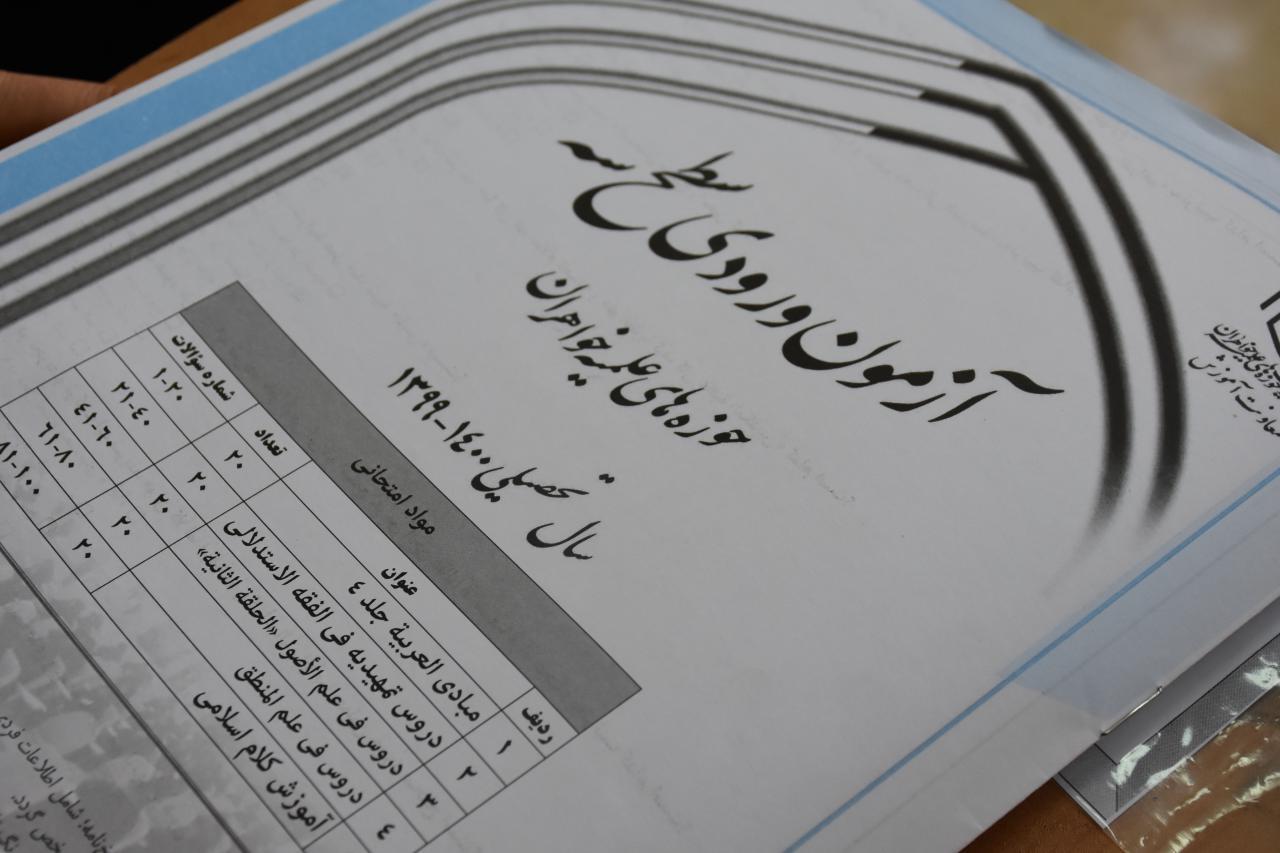 آزمون ورودی سطح سه
حوزه‌های علمیه خواهران
سال تحصیلی ۱۴۰۰-۱۳۹۹
معاونت آموزش
مواد امتحانی
ردیف عنوان تعداد شماره سؤالات
۱ مبادی العربیة جلد ٤ ۲۰ ۱-۲۰
۲ دروس تمهیدیه فی الفقه الاستدلالی ۲۰ ۲۱-٤۰
۳ دروس فی علم الأصول «الحلقة الثانیة» ۲۰ ٤۱-٦۰
٤ دروس فی علم المنطق ۲۰ ٦۱-۸۰
آموزش کلام اسلامی ۲۰ ۸۱-۱۰۰
شامل اطلاعات فردی
گردد.